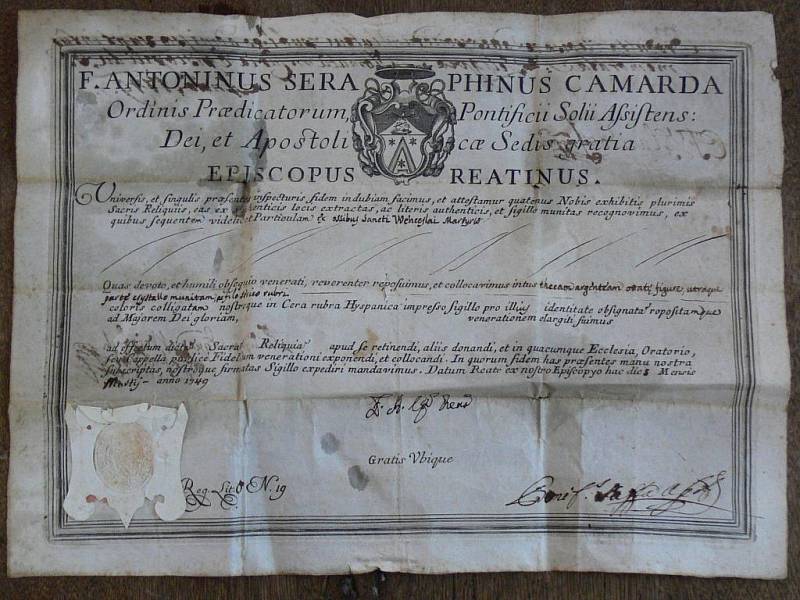 F. ANTONINUS SERAPHINUS CAMARDA
Ordinis Prædicatorum, Pontificii Solii Assistens:
Dei, et Apostolicæ Sedis gratia
EPISCOPUS REATINUS.
Universis, et singulis præsentes inspecturis, fidem indubiam facimus, et attestamur quatenus Nobis exhibitis plurimis
Sacris Reliquiis, eas ex authenticis locis extractas, ac literis authenticis, et sigillo munitas recognovimus, ex
quibus sequentem videlicet Particulam ex ossibus Sancti Wenceslai Martyris
Quas devoto, et humili obsequio venerati, reverenter reposuimus, et collocavimus intus thecam argenteam figure utraque
parte crystallo munitam, ac filo rubri
coloris colligatam nostroque in Cera rubra Hyspanica impresso sigillo pro illius identitate obsignata
ad Majorem Dei gloriam, venerationem elargiti fuimus
ad effectum dict Sacra Reliquia apud se retinendi, aliis donandi, et in quacumque Ecclesia, Oratorio,
seu Cappella publicè Fidelium venerationi exponendi, et collocandi. In quorum fidem has præsentes manu nostra
subscriptas, nostroque firmatas Sigillo expediri mandavimus. Datum Reate ex nostro Episcopyo hac die Mensis
anno 1749
Gratis Vbique
Reg. Lit. N. 19